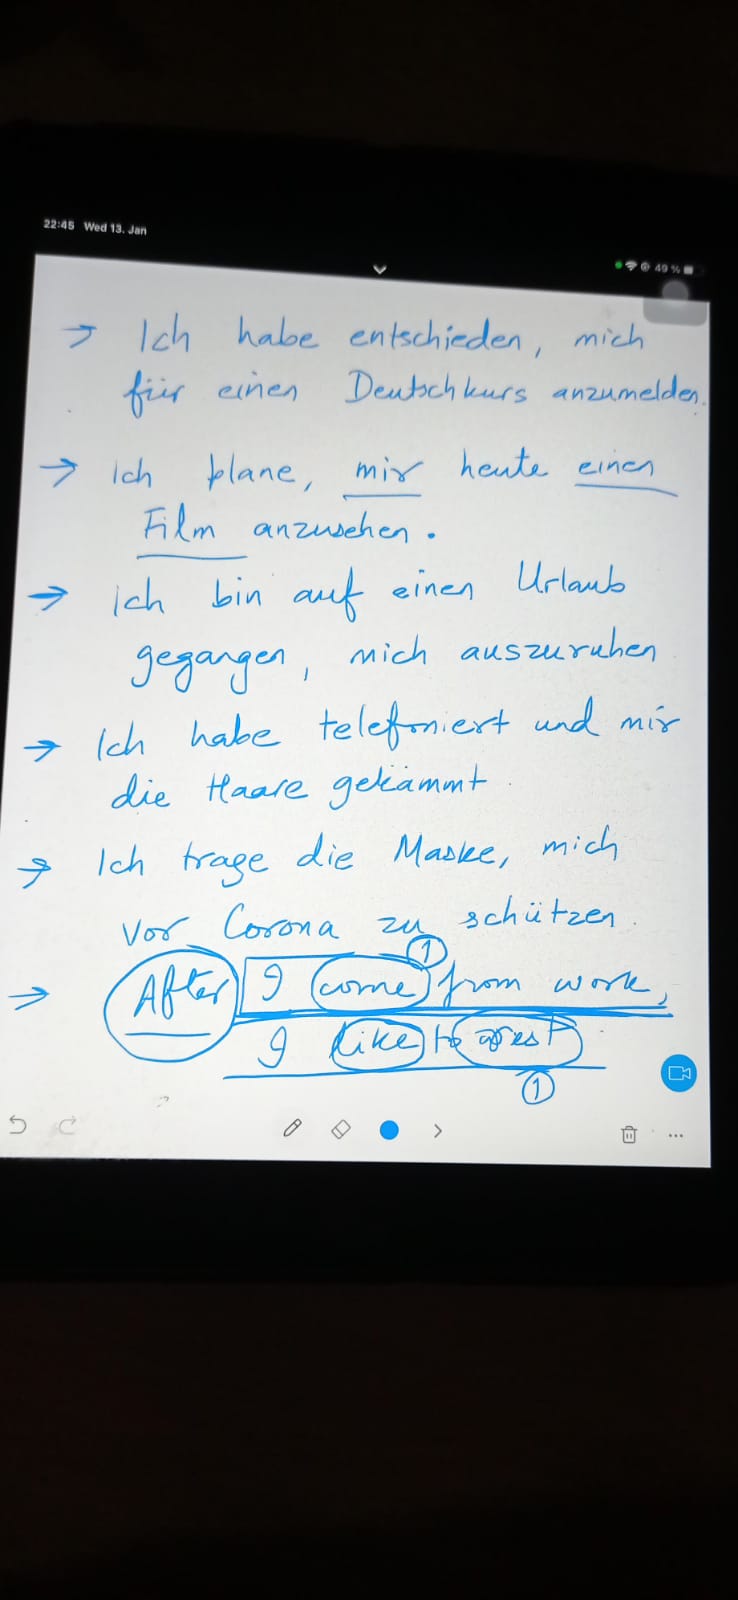 22:45 Wed 13. Jan
49 %
→ Ich habe entschieden, mich
für einen Deutschkurs anzumelden.
→ Ich plane, mir heute einen
Film anzusehen.
→ ich bin auf einen Urlaub
gegangen, mich auszuruhen
→ Ich habe telefoniert und mir
die Haare gekämmt.
→ Ich trage die Maske, mich
vor Corona zu schützen.
①
→ After I come from work,
I like to rest
①